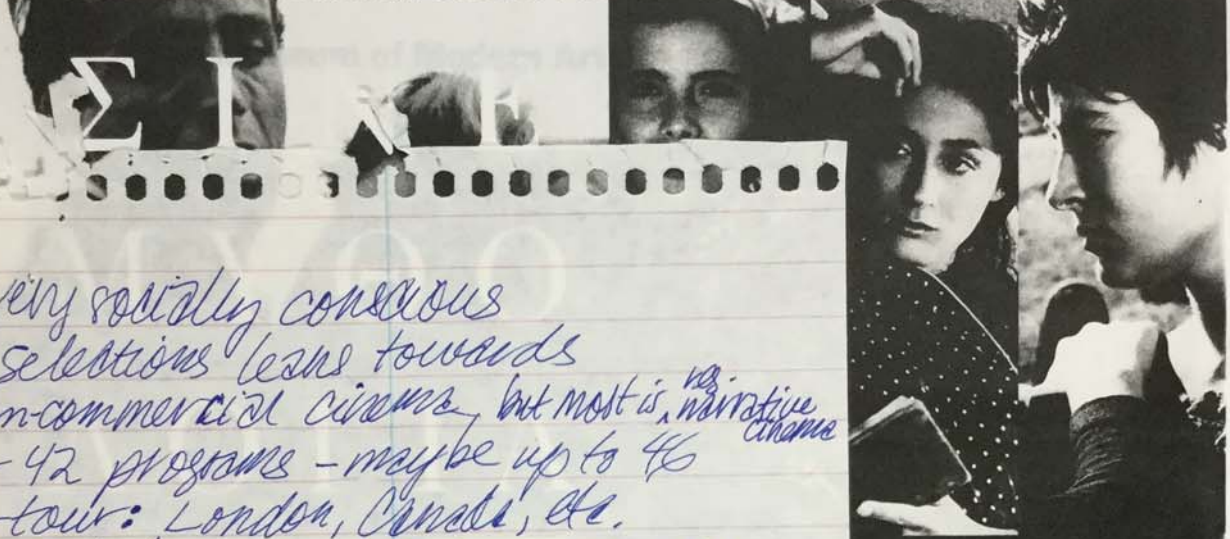 Σ Ι
very socially conscious
selections leans towards
n-commercial cinema, but most is narrative cinema
-42 programs - maybe up to 46
-tour: London, Canada, etc.